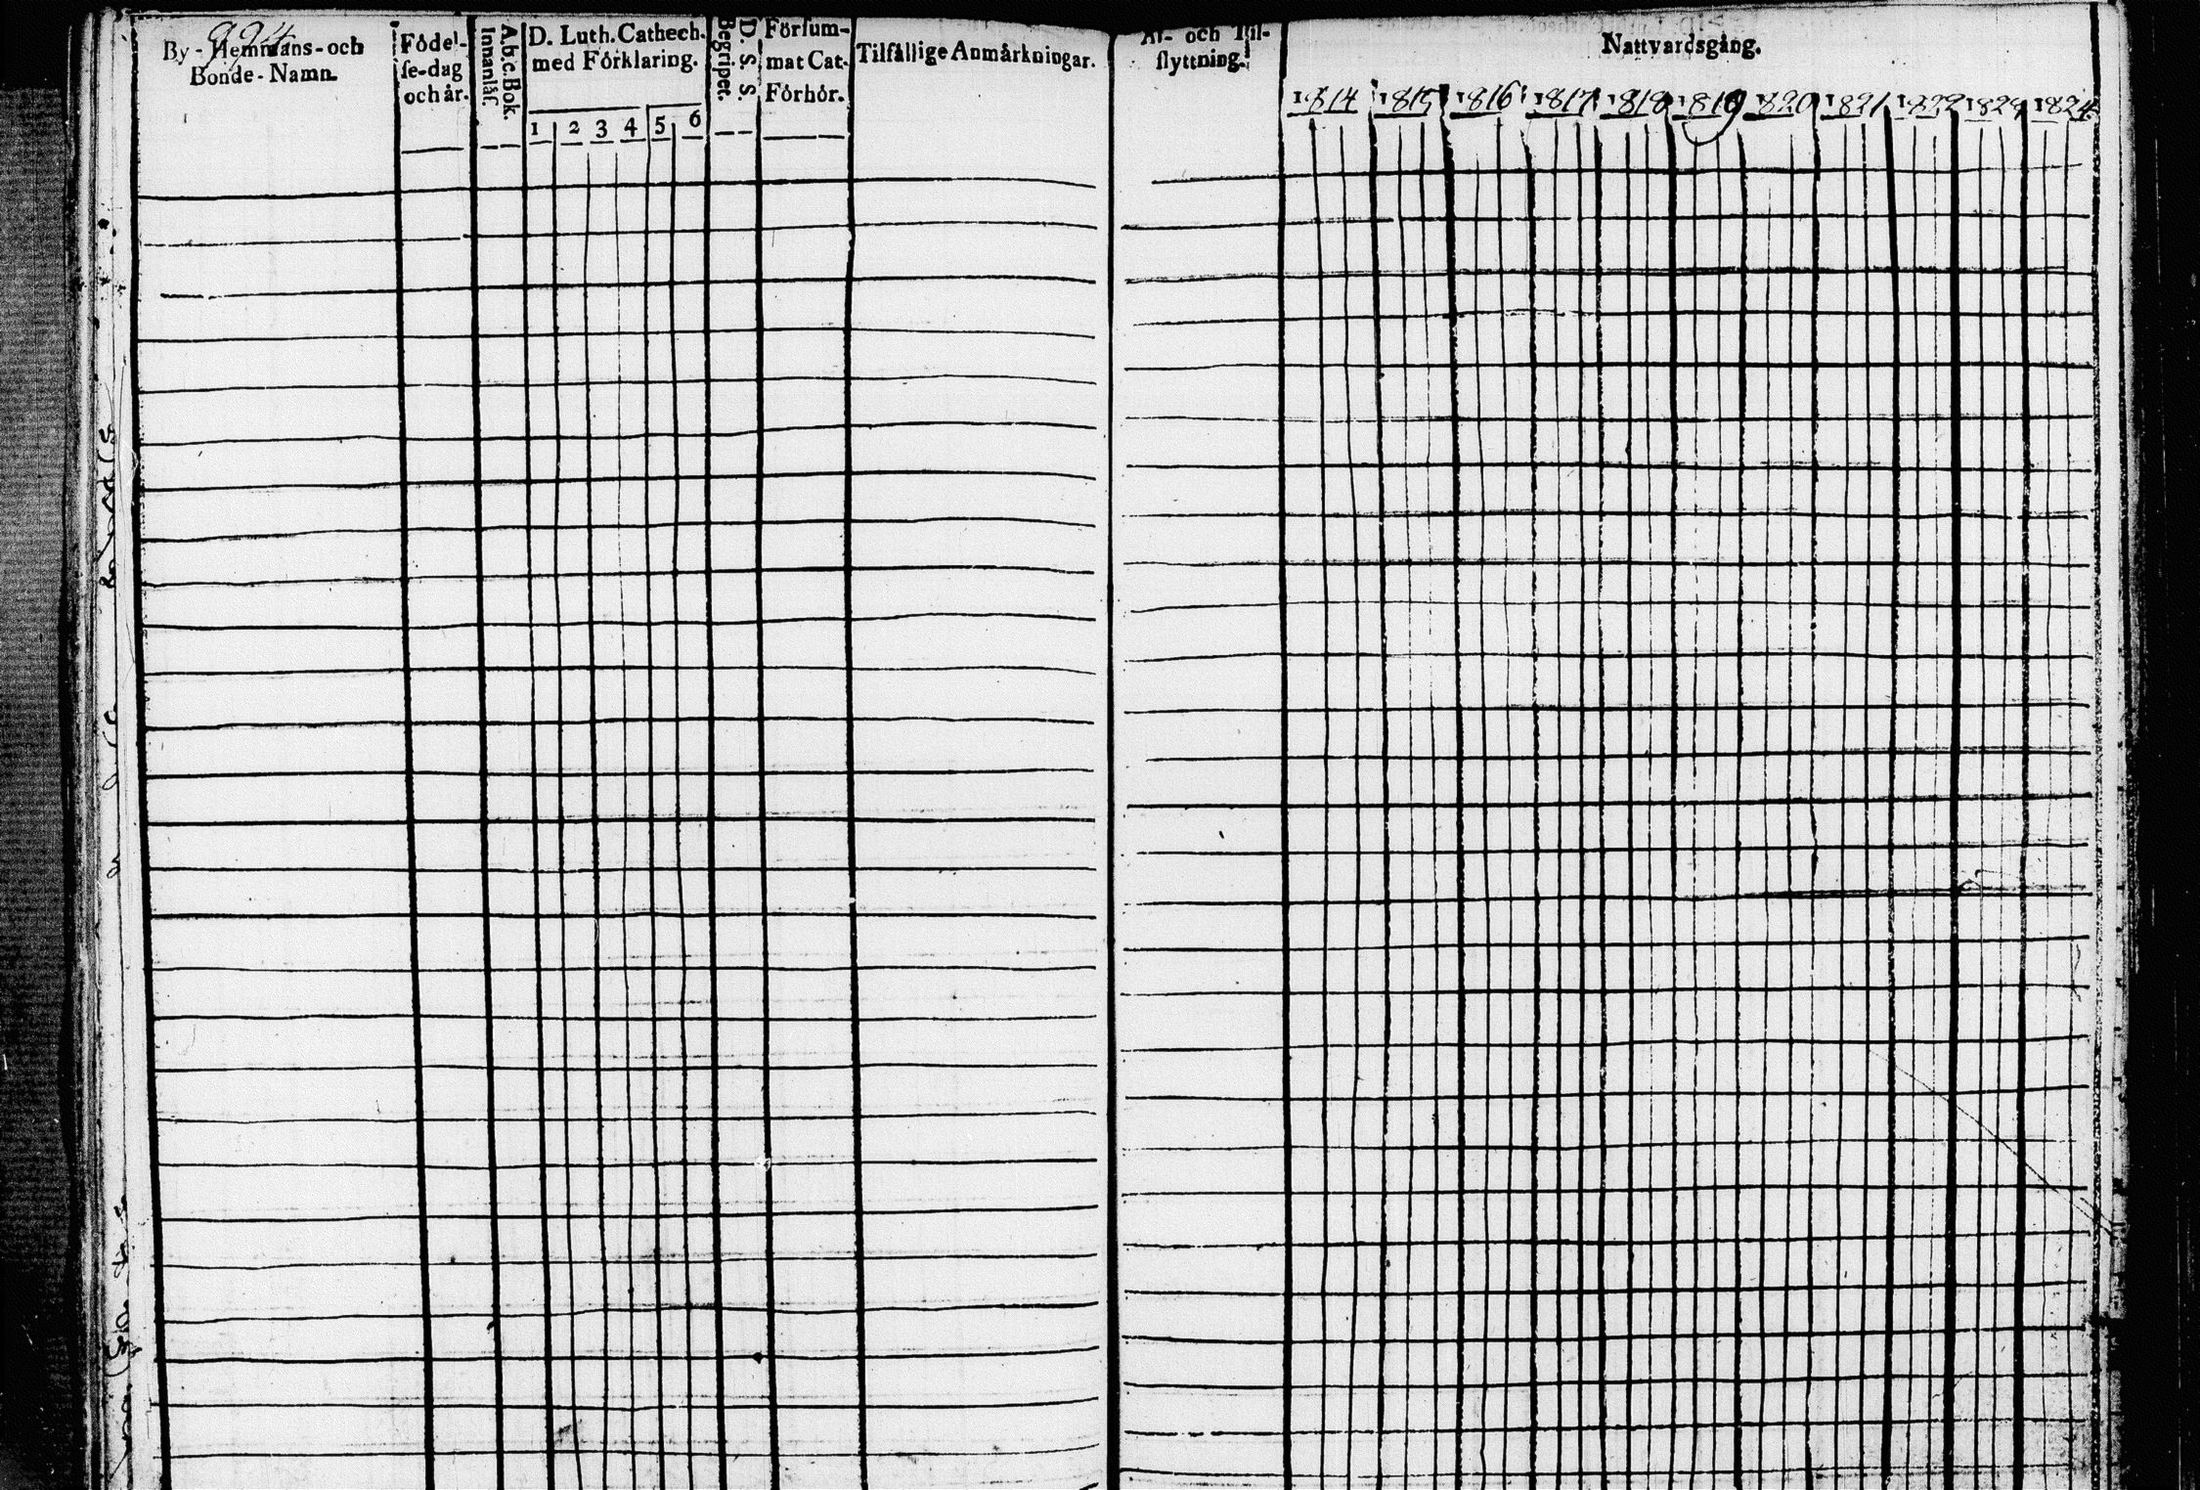 994
By-Hemmans-och
Bonde-Namn.
Födel-
ſe-dag
och år.
A.b.c.Bok.
Innanläſ.
D. Luth. Cathech.
med Förklaring.
1 2 3 4 5 6
D. S. S.
Begripet.
Förſum-
mat Cat-
Förhör.
Tilfällige Anmärkningar.
Af- och Til-
flyttning.
Nattvardsgång.
1814 1815 1816 1817 1818 1819 1820 1821 1822 1823 1824